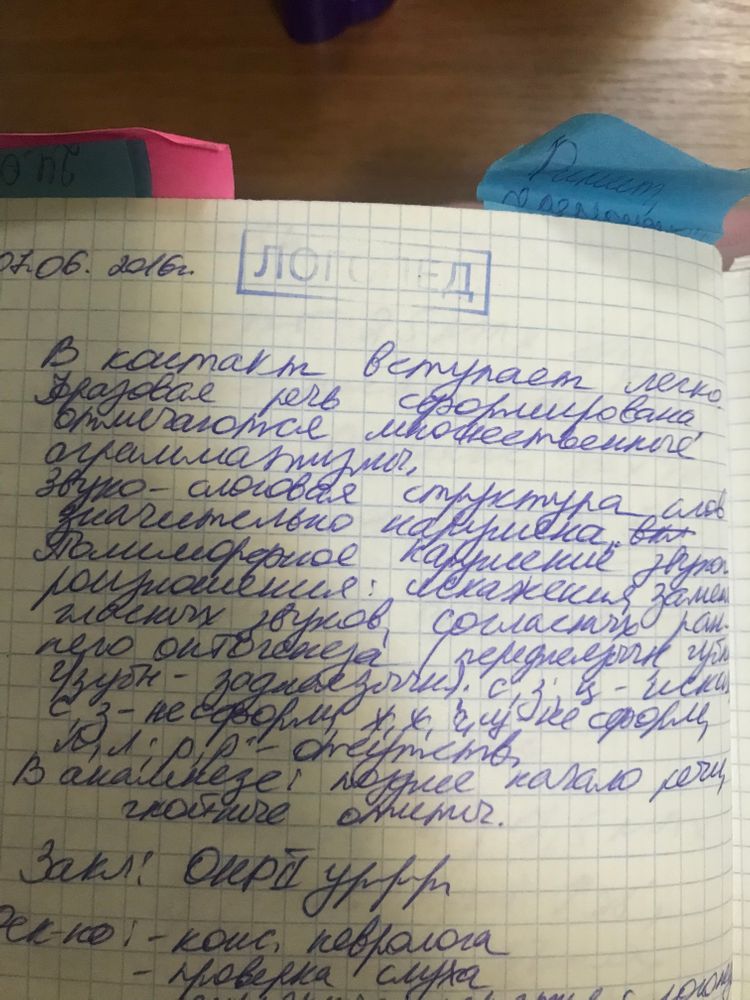 07.06. 2016г.
ЛОГОПЕД
В контакт вступает легко.
Фразовая речь сформирована,
отмечаются множественные
аграмматизмы.
Звуко-слоговая структура слов
значительно нарушена.
Полиморфное нарушение звуко-
роизношения: искажения, замен
гласных звуков, согласных ран-
него онтогенеза (переднеязычн губн
- заднеязычн). с, з, ц - искаж
с, з - не сформ, ж, х, ч, щ не сформ,
л, л; р, р - отсутств.
В анамнезе: позднее начало речи,
гнойные отиты.
Закл: ОНР II ур-р-р
Рек-но: - конс. невролога
- проверка слуха